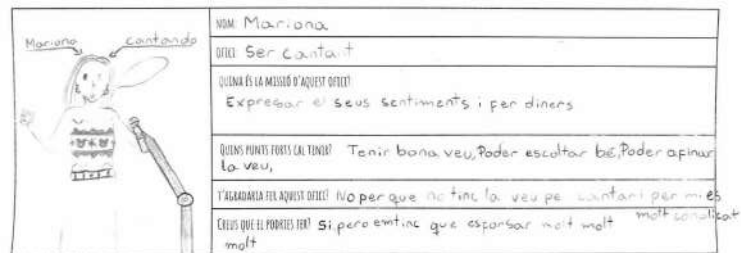 Mariona
cantando
NOM: Mariona
OFICI: Ser cantant
QUINA ÉS LA MISSIÓ D'AQUEST OFICI?
Expresar el seus sentiments i fer diners
QUINS PUNTS FORTS CAL TENIR? Tenir bona veu, Poder escoltar bé, Poder afinar
la veu,
T'AGRADARIA FER AQUEST OFICI? No per que no tinc la veu pe cantar i per mi es
molt complicat
CREUS QUE EL PODRIES FER? Si pero emtinc que esforsar molt molt
molt